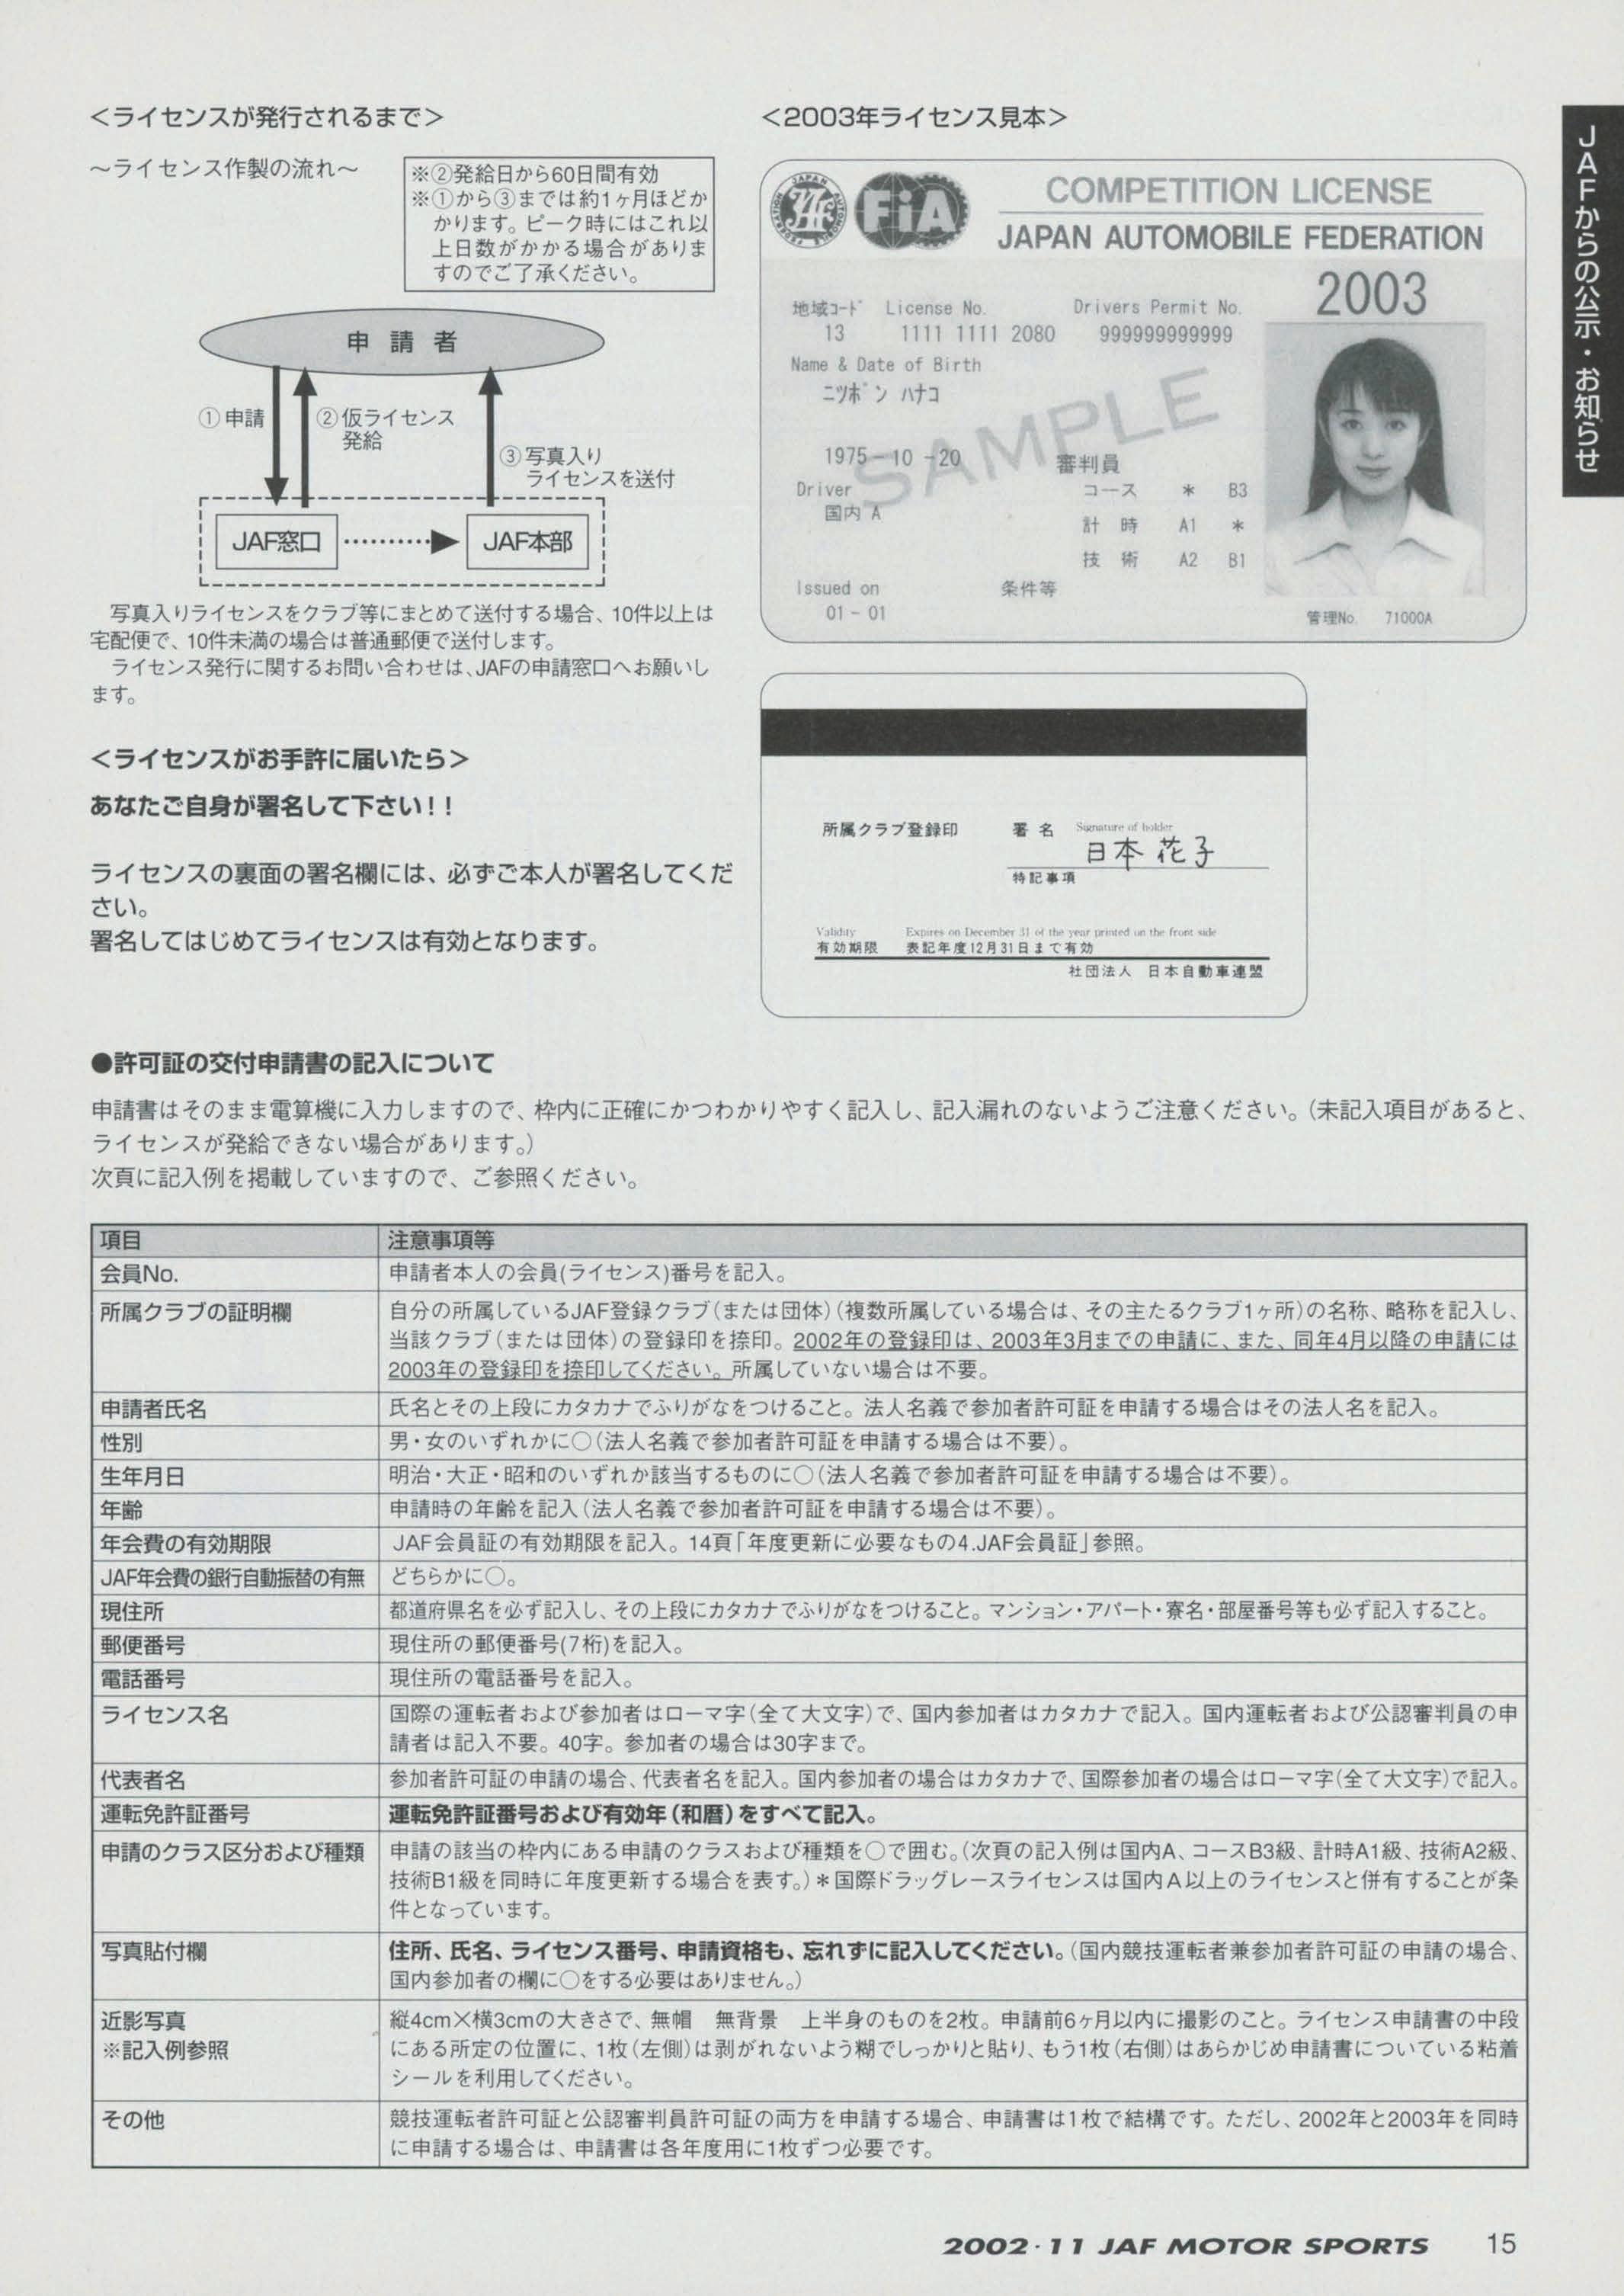 ＜ライセンスが発行されるまで＞
～ライセンス作製の流れ～
※②発給日から60日間有効
※①から③までは約1ヶ月ほどか
かります。ピーク時にはこれ以
上日数がかかる場合がありま
すのでご了承ください。
申 請 者
①申請
②仮ライセンス
発給
③写真入り
ライセンスを送付
JAF窓口
JAF本部
写真入りライセンスをクラブ等にまとめて送付する場合、10件以上は
宅配便で、10件未満の場合は普通郵便で送付します。
ライセンス発行に関するお問い合わせは、JAFの申請窓口へお願いし
ます。
＜ライセンスがお手許に届いたら＞
あなたご自身が署名して下さい！！
ライセンスの裏面の署名欄には、必ずご本人が署名してくだ
さい。
署名してはじめてライセンスは有効となります。
＜2003年ライセンス見本＞
JAPAN AUTOMOBILE FEDERATION
JAF
FiA
COMPETITION LICENSE
JAPAN AUTOMOBILE FEDERATION
2003
地域コード License No. Drivers Permit No.
13 1111 1111 2080 999999999999
Name & Date of Birth
ニツポン ハナコ
SAMPLE
1975-10-20
審判員
Driver
コース * B3
国内 A
計 時 A1 *
技 術 A2 B1
Issued on
条件等
01-01
管理No. 71000A
所属クラブ登録印
署 名 Signature of holder
日本 花子
特記事項
Validity Expires on December 31 of the year printed on the front side
有効期限 表記年度12月31日まで有効
社団法人 日本自動車連盟
JAFからの公示・お知らせ
●許可証の交付申請書の記入について
申請書はそのまま電算機に入力しますので、枠内に正確にかつわかりやすく記入し、記入漏れのないようご注意ください。（未記入項目があると、
ライセンスが発給できない場合があります。）
次頁に記入例を掲載していますので、ご参照ください。
項目 注意事項等
会員No. 申請者本人の会員(ライセンス)番号を記入。
所属クラブの証明欄 自分の所属しているJAF登録クラブ（または団体）（複数所属している場合は、その主たるクラブ1ヶ所）の名称、略称を記入し、
当該クラブ（または団体）の登録印を捺印。2002年の登録印は、2003年3月までの申請に、また、同年4月以降の申請には
2003年の登録印を捺印してください。所属していない場合は不要。
申請者氏名 氏名とその上段にカタカナでふりがなをつけること。法人名義で参加者許可証を申請する場合はその法人名を記入。
性別 男・女のいずれかに○（法人名義で参加者許可証を申請する場合は不要）。
生年月日 明治・大正・昭和のいずれか該当するものに○（法人名義で参加者許可証を申請する場合は不要）。
年齢 申請時の年齢を記入（法人名義で参加者許可証を申請する場合は不要）。
年会費の有効期限 JAF会員証の有効期限を記入。14頁「年度更新に必要なもの4.JAF会員証」参照。
JAF年会費の銀行自動振替の有無 どちらかに○。
現住所 都道府県名を必ず記入し、その上段にカタカナでふりがなをつけること。マンション・アパート・寮名・部屋番号等も必ず記入すること。
郵便番号 現住所の郵便番号(7桁)を記入。
電話番号 現住所の電話番号を記入。
ライセンス名 国際の運転者および参加者はローマ字（全て大文字）で、国内参加者はカタカナで記入。国内運転者および公認審判員の申
請者は記入不要。40字。参加者の場合は30字まで。
代表者名 参加者許可証の申請の場合、代表者名を記入。国内参加者の場合はカタカナで、国際参加者の場合はローマ字（全て大文字）で記入。
運転免許証番号 運転免許証番号および有効年（和暦）をすべて記入。
申請のクラス区分および種類 申請の該当の枠内にある申請のクラスおよび種類を○で囲む。（次頁の記入例は国内A、コースB3級、計時A1級、技術A2級、
技術B1級を同時に年度更新する場合を表す。）＊国際ドラッグレースライセンスは国内A以上のライセンスと併有することが条
件となっています。
写真貼付欄 住所、氏名、ライセンス番号、申請資格も、忘れずに記入してください。（国内競技運転者兼参加者許可証の申請の場合、
国内参加者の欄に○をする必要はありません。）
近影写真 縦4cm×横3cmの大きさで、無帽 無背景 上半身のものを2枚。申請前6ヶ月以内に撮影のこと。ライセンス申請書の中段
※記入例参照 にある所定の位置に、1枚（左側）は剥がれないよう糊でしっかりと貼り、もう1枚（右側）はあらかじめ申請書についている粘着
シールを利用してください。
その他 競技運転者許可証と公認審判員許可証の両方を申請する場合、申請書は1枚で結構です。ただし、2002年と2003年を同時
に申請する場合は、申請書は各年度用に1枚ずつ必要です。
2002・11 JAF MOTOR SPORTS 15